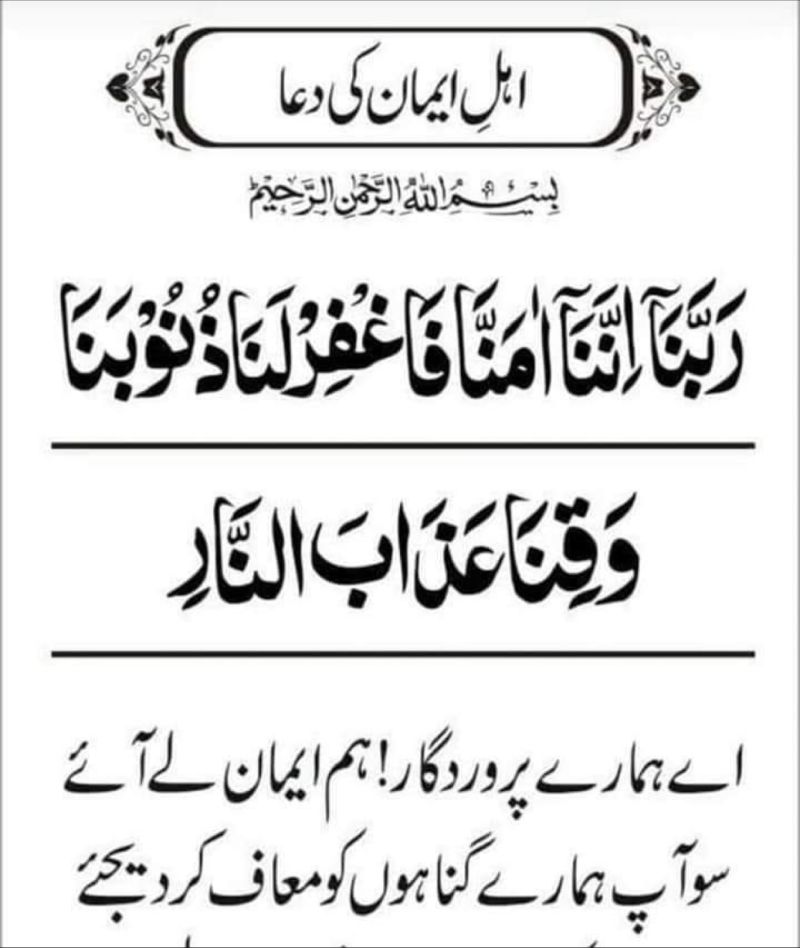 اہلِ ایمان کی دعا
بِسْمِ اللّٰهِ الرَّحْمٰنِ الرَّحِيْمِ
رَبَّنَآ اِنَّنَآ اٰمَنَّا فَاغْفِرْ لَنَا ذُنُوْبَنَا
وَقِنَا عَذَابَ النَّارِ
اے ہمارے پروردگار! ہم ایمان لے آئے
سو آپ ہمارے گناہوں کو معاف کر دیجئے